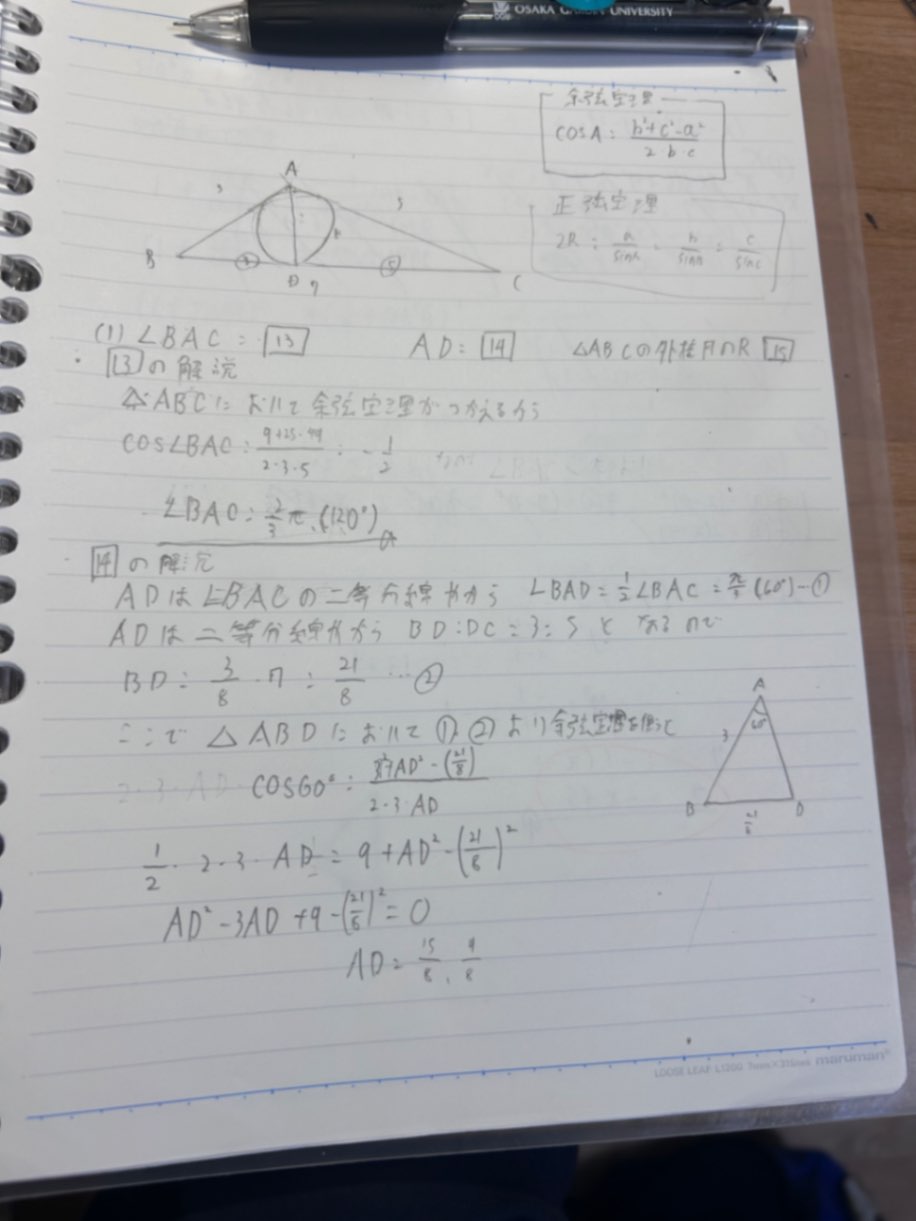 OSAKA UNIVERSITY
余弦定理
cosA = b²+c²-a² / 2·b·c
A
3
5
正弦定理
2R = a/sinA = b/sinB = c/sinC
B ③ D 7 ⑤ C
(1) ∠BAC = [13] AD = [14] △ABCの外接円のR [15]
[13]の解説
△ABCにおいて余弦定理がつかえるから
cos∠BAC = 9+25-49 / 2·3·5 = -1/2
∠BAC = 2/3 π (120°)
[14]の解説
ADは∠BACの二等分線だから ∠BAD = 1/2 ∠BAC = π/3 (60°)…①
ADは二等分線だから BD:DC = 3:5 となるので
BD = 3/8 · 7 = 21/8 …②
A
ここで △ABDにおいて ①,②より余弦定理を使うと
60°
3
cos60° = 3²+AD²-(21/8) / 2·3·AD
B D
21/8
1/2 · 2·3·AD = 9+AD²-(21/8)²
AD²-3AD+9-(21/8)² = 0
AD = 15/8, 9/8
LOOSE LEAF L1200 7mm×31lines maruman